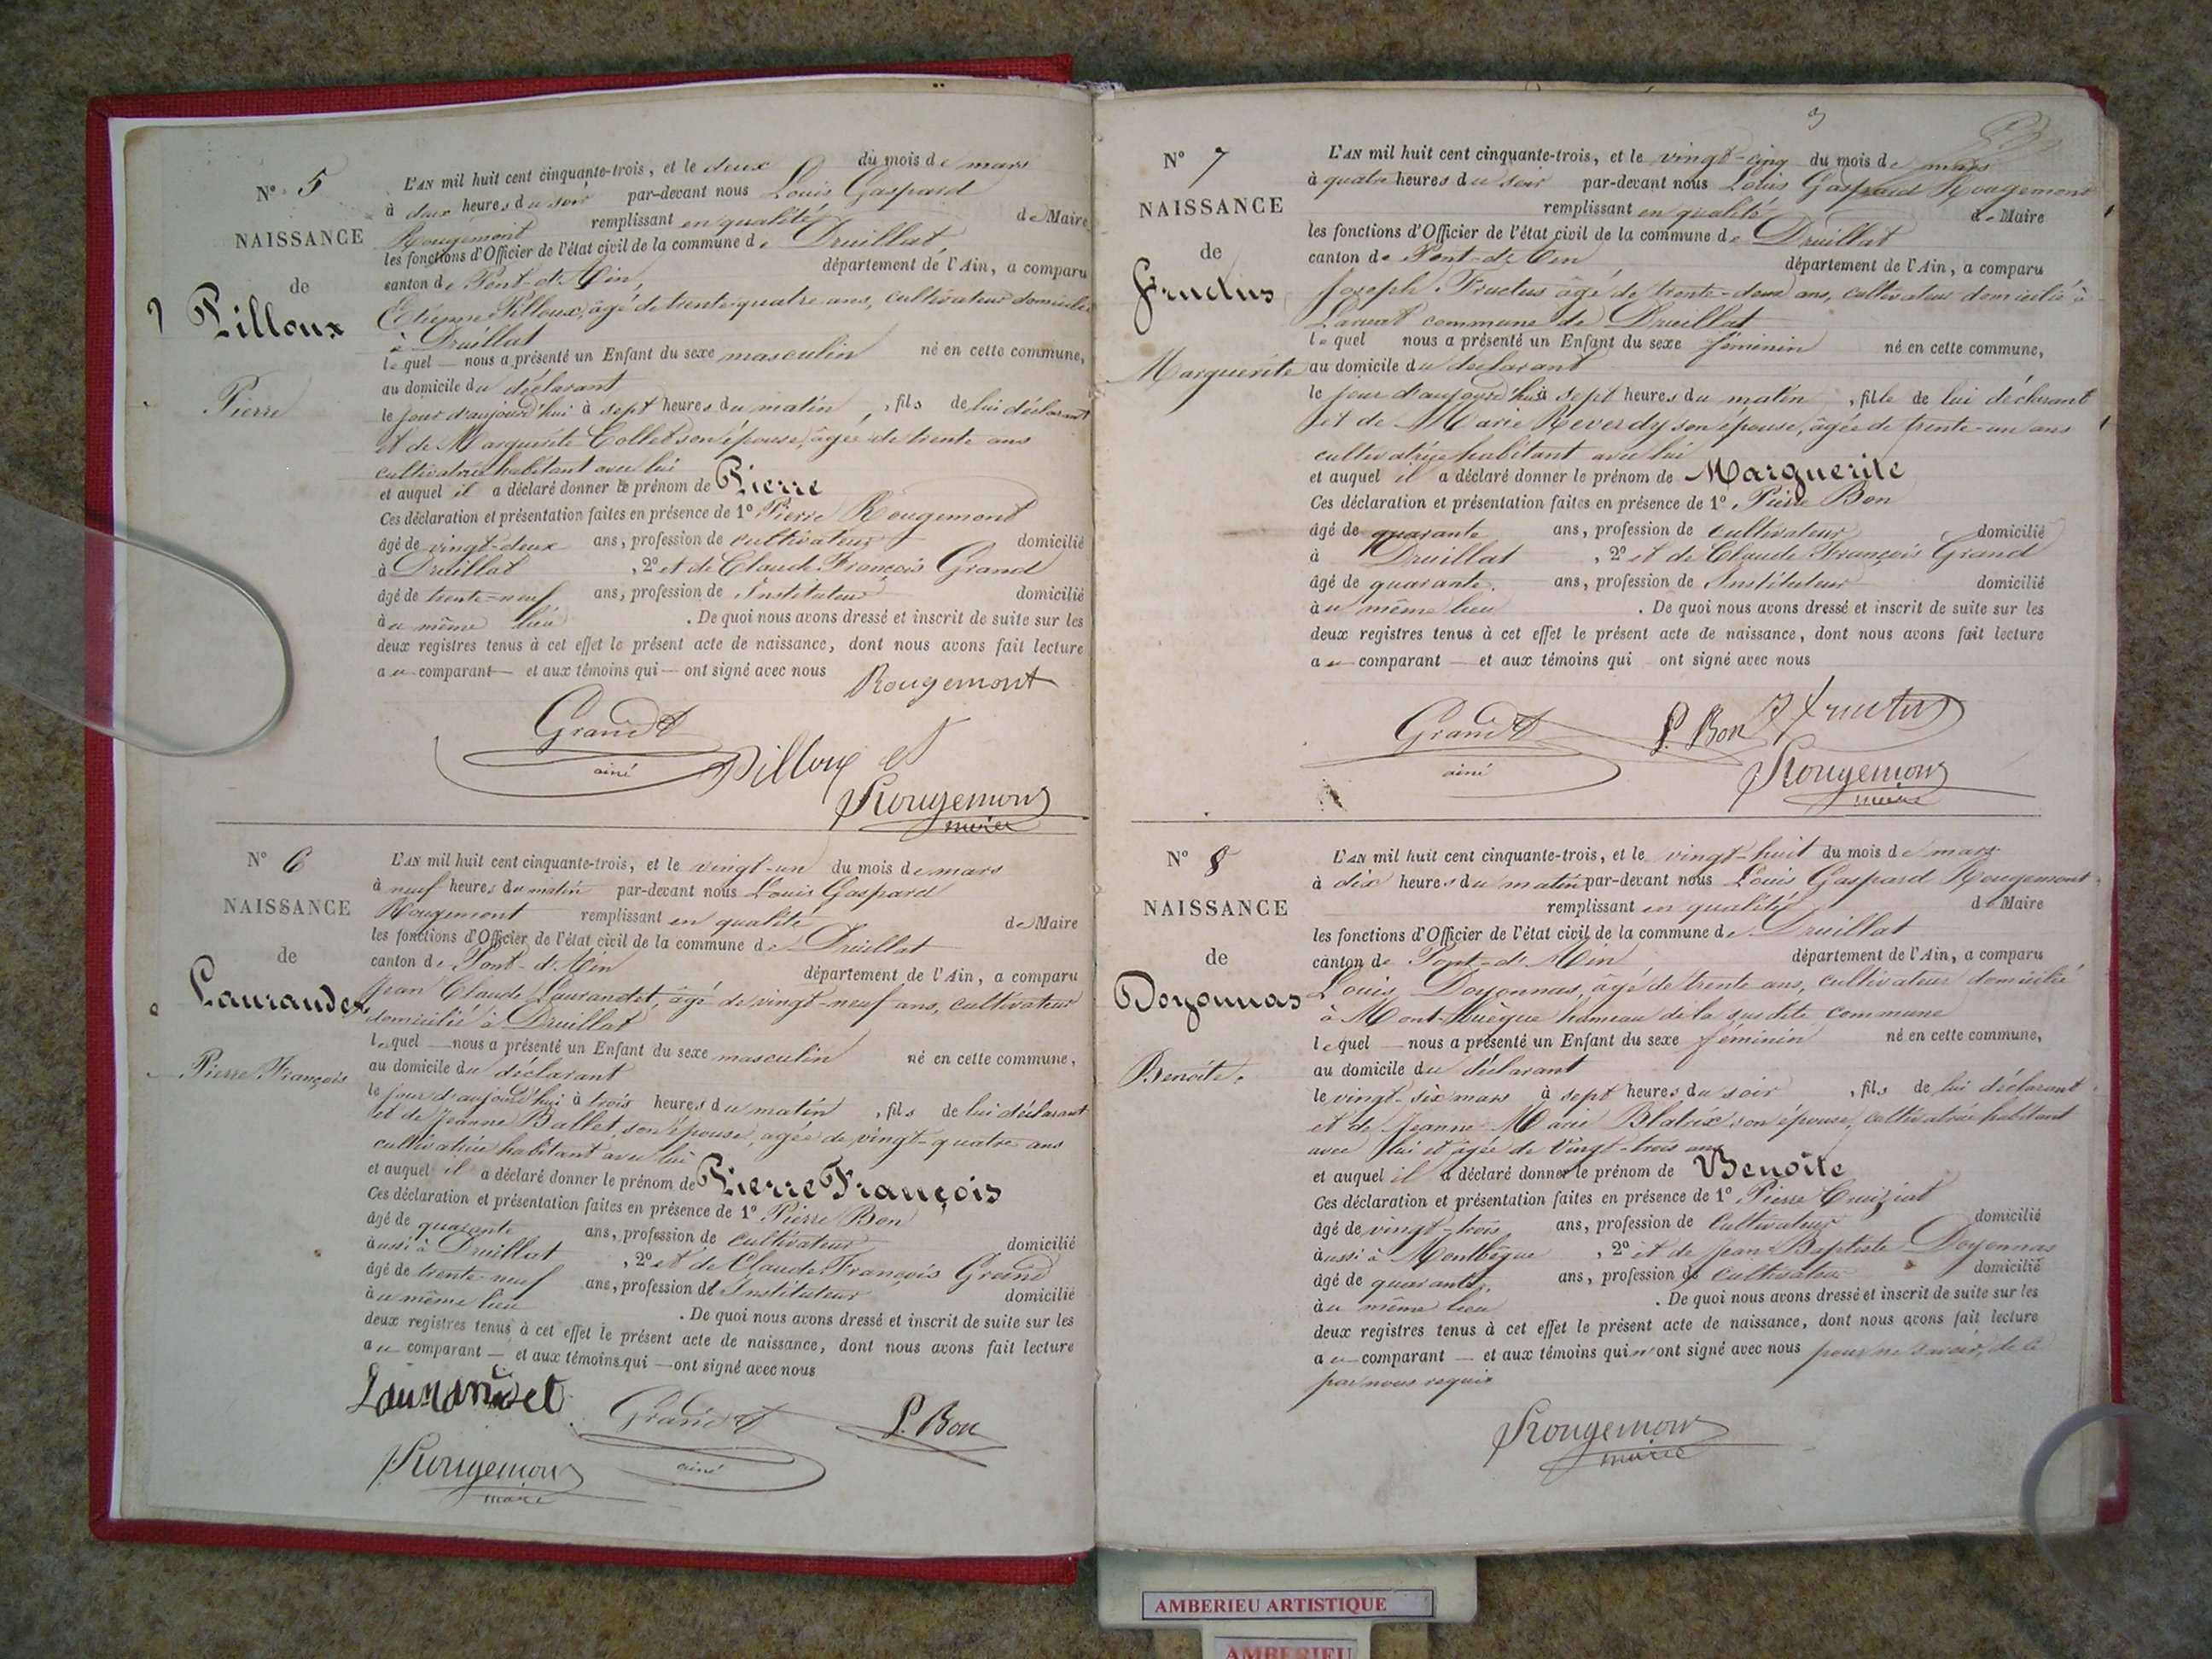 N° 5
NAISSANCE
de
Pilloux
Pierre
L'AN mil huit cent cinquante-trois, et le deux du mois de mars
à deux heures du soir par-devant nous Louis Gaspard
Rougemont remplissant en qualité de Maire
les fonctions d'Officier de l'état civil de la commune de Druillat,
canton de Pont-d'Ain, département de l'Ain, a comparu
Etienne Pilloux, âgé de trente-quatre ans, cultivateur domicilié
à Druillat
lequel nous a présenté un Enfant du sexe masculin né en cette commune,
au domicile du déclarant
le jour d'aujourd'hui à sept heures du matin, fils de lui déclarant
et de Marguerite Collet son épouse, âgée de trente ans
cultivatrice habitant avec lui
et auquel il a déclaré donner le prénom de Pierre
Ces déclaration et présentation faites en présence de 1° Pierre Rougemont
âgé de vingt-deux ans, profession de cultivateur domicilié
à Druillat, 2° et de Claude François Grand
âgé de trente-neuf ans, profession de Instituteur domicilié
au même lieu. De quoi nous avons dressé et inscrit de suite sur les
deux registres tenus à cet effet le présent acte de naissance, dont nous avons fait lecture
au comparant — et aux témoins qui — ont signé avec nous
Rougemont
Grand
ainé
Pilloux et
Rougemont
maire
N° 6
NAISSANCE
de
Laurandet
Pierre François
L'AN mil huit cent cinquante-trois, et le vingt-un du mois de mars
à neuf heures du matin par-devant nous Louis Gaspard
Rougemont remplissant en qualité de Maire
les fonctions d'Officier de l'état civil de la commune de Druillat
canton de Pont-d'Ain département de l'Ain, a comparu
Jean Claude Laurandet, âgé de vingt-neuf ans, cultivateur
domicilié à Druillat
lequel — nous a présenté un Enfant du sexe masculin né en cette commune,
au domicile du déclarant
le jour d'aujourd'hui à trois heures du matin, fils de lui déclarant
et de Jeanne Ballet, son épouse, âgée de vingt-quatre ans
cultivatrice habitant avec lui
et auquel il a déclaré donner le prénom de Pierre François
Ces déclaration et présentation faites en présence de 1° Pierre Bon
âgé de quarante ans, profession de cultivateur domicilié
aussi à Druillat, 2° et de Claude François Grand
âgé de trente-neuf ans, profession de Instituteur domicilié
au même lieu. De quoi nous avons dressé et inscrit de suite sur les
deux registres tenus à cet effet le présent acte de naissance, dont nous avons fait lecture
au comparant — et aux témoins qui — ont signé avec nous
Laurandet
Grand
ainé
P. Bon
Rougemont
maire
3
N° 7
NAISSANCE
de
Fructus
Marguerite
L'AN mil huit cent cinquante-trois, et le vingt-cinq du mois de mars
à quatre heures du soir par-devant nous Louis Gaspard Rougemont
remplissant en qualité de Maire
les fonctions d'Officier de l'état civil de la commune de Druillat
canton de Pont-d'Ain département de l'Ain, a comparu
Joseph Fructus âgé de trente-deux ans, cultivateur domicilié à
commune de Druillat
lequel nous a présenté un Enfant du sexe féminin né en cette commune,
au domicile du déclarant
le jour d'aujourd'hui à sept heures du matin, fille de lui déclarant
et de Marie Reverdy son épouse, âgée de trente-un ans
cultivatrice habitant avec lui
et auquel il a déclaré donner le prénom de Marguerite
Ces déclaration et présentation faites en présence de 1° Pierre Bon
âgé de quarante ans, profession de cultivateur domicilié
à Druillat, 2° et de Claude François Grand
âgé de quarante. ans, profession de Instituteur domicilié
au même lieu. De quoi nous avons dressé et inscrit de suite sur les
deux registres tenus à cet effet le présent acte de naissance, dont nous avons fait lecture
au comparant — et aux témoins qui ont signé avec nous
Grand
ainé
P. Bon
Fructus
Rougemont
maire
N° 8
NAISSANCE
de
Doyonnas
Benoite.
L'AN mil huit cent cinquante-trois, et le vingt-huit du mois de mars
à dix heures du matin par-devant nous Louis Gaspard Rougemont
remplissant en qualité de Maire
les fonctions d'Officier de l'état civil de la commune de Druillat
canton de Pont-d'Ain département de l'Ain, a comparu
Louis Doyonnas, âgé de trente ans, cultivateur domicilié
à hameau de la susdite commune
lequel — nous a présenté un Enfant du sexe féminin né en cette commune,
au domicile du déclarant
le vingt-six mars à sept heures du soir, fils de lui déclarant
et de Jeanne Marie Blatrix son épouse, cultivatrice habitant
avec lui et âgée de vingt-trois ans
et auquel il a déclaré donner le prénom de Benoite
Ces déclaration et présentation faites en présence de 1° Pierre Cruiziat
âgé de vingt-trois ans, profession de Cultivateur domicilié
aussi à Montbègue, 2° et de Jean-Baptiste Doyonnas
âgé de quarante, ans, profession de Cultivateur domicilié
au même lieu. De quoi nous avons dressé et inscrit de suite sur les
deux registres tenus à cet effet le présent acte de naissance, dont nous avons fait lecture
au comparant — et aux témoins qui n'ont signé avec nous pour ne savoir, de ce
par nous requis
Rougemont
maire
AMBERIEU ARTISTIQUE
AMBERIEU